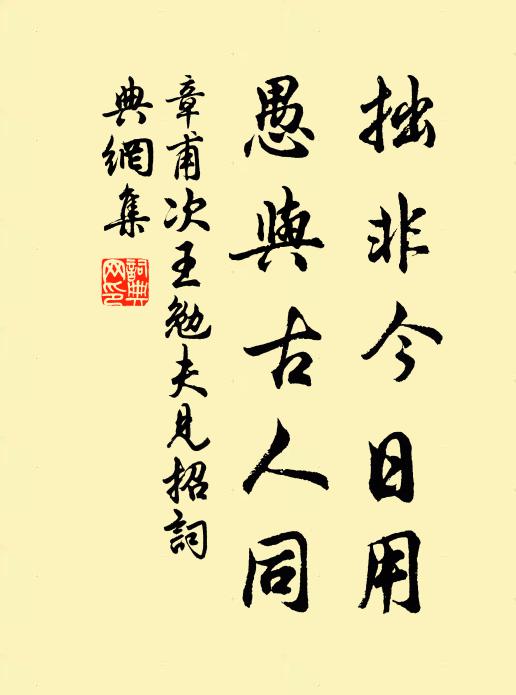 拙非今日用
愚與古人同
章甫次王勉夫見招詞
典網集
詞典網印